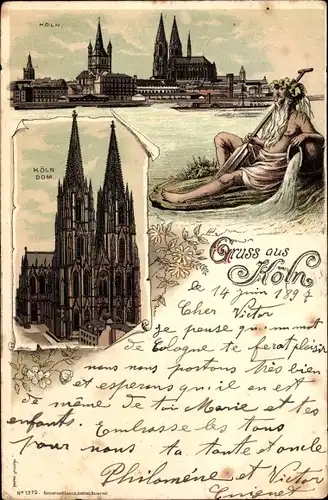 KÖLN.
KÖLN
DOM.
Gruss aus
Köln
le 14 juin 1897
Cher Victor
Je pense qu'un mot
de Cologne te ferat plaisir
nous nous portons très bien
et esperons qu'il en est
de même de toi Marie et tes
enfants. Embrasse les tous
pour nous ta tante et oncle
Philoméne et Victor
No 1373.